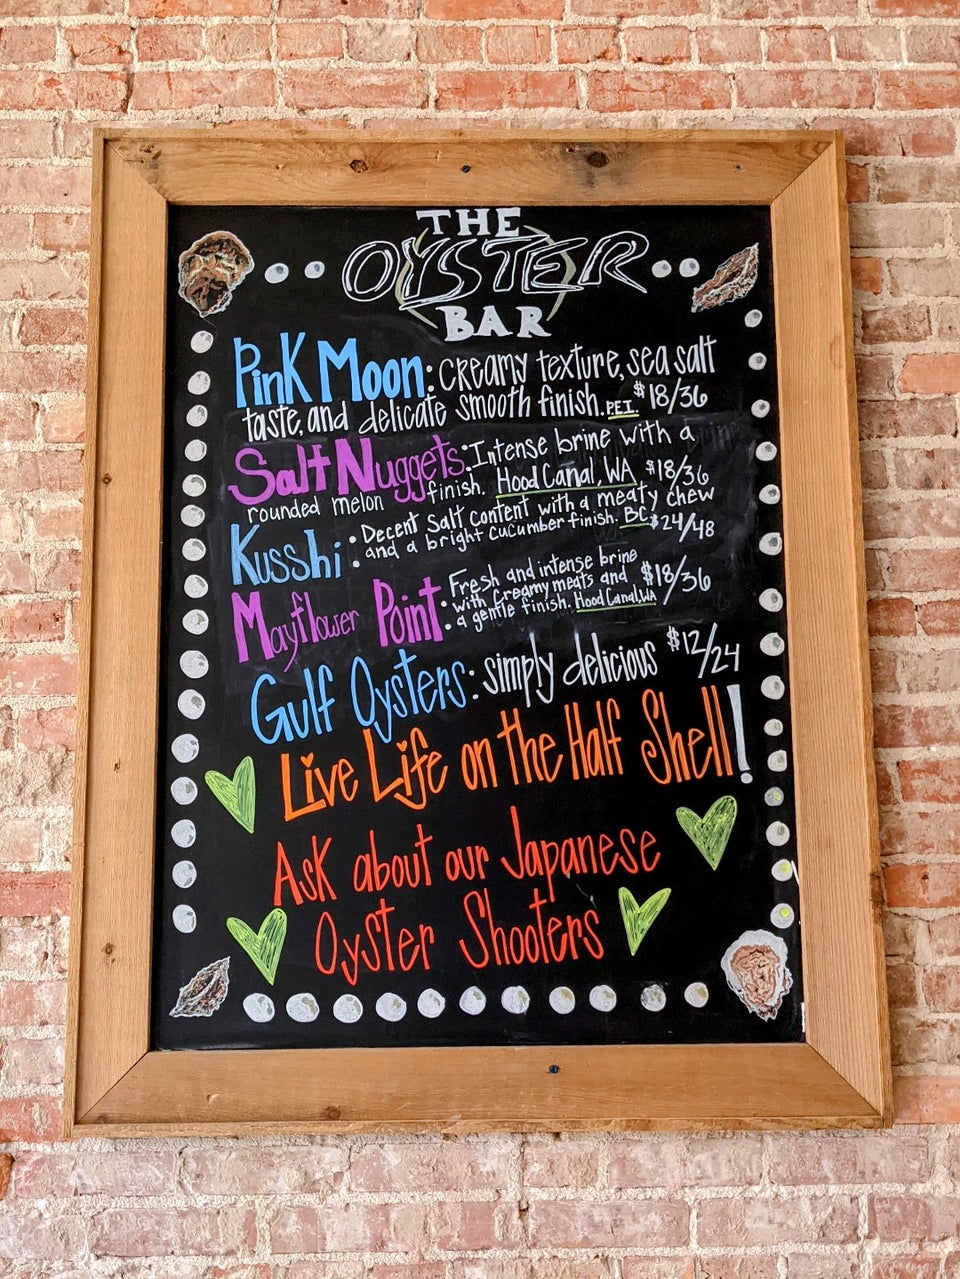 THE
OYSTER
BAR
Pink Moon: Creamy texture, sea salt
taste, and delicate smooth finish. PEI. $18/36
Salt Nuggets: Intense brine with a
rounded melon finish. Hood Canal, WA $18/36
Kusshi: Decent Salt Content with a meaty chew
and a bright cucumber finish. BC $24/48
Mayflower Point: Fresh and intense brine
with creamy meats and $18/36
a gentle finish. Hood Canal, WA
Gulf Oysters: simply delicious $12/24
Live Life on the Half Shell!
Ask about our Japanese
Oyster Shooters